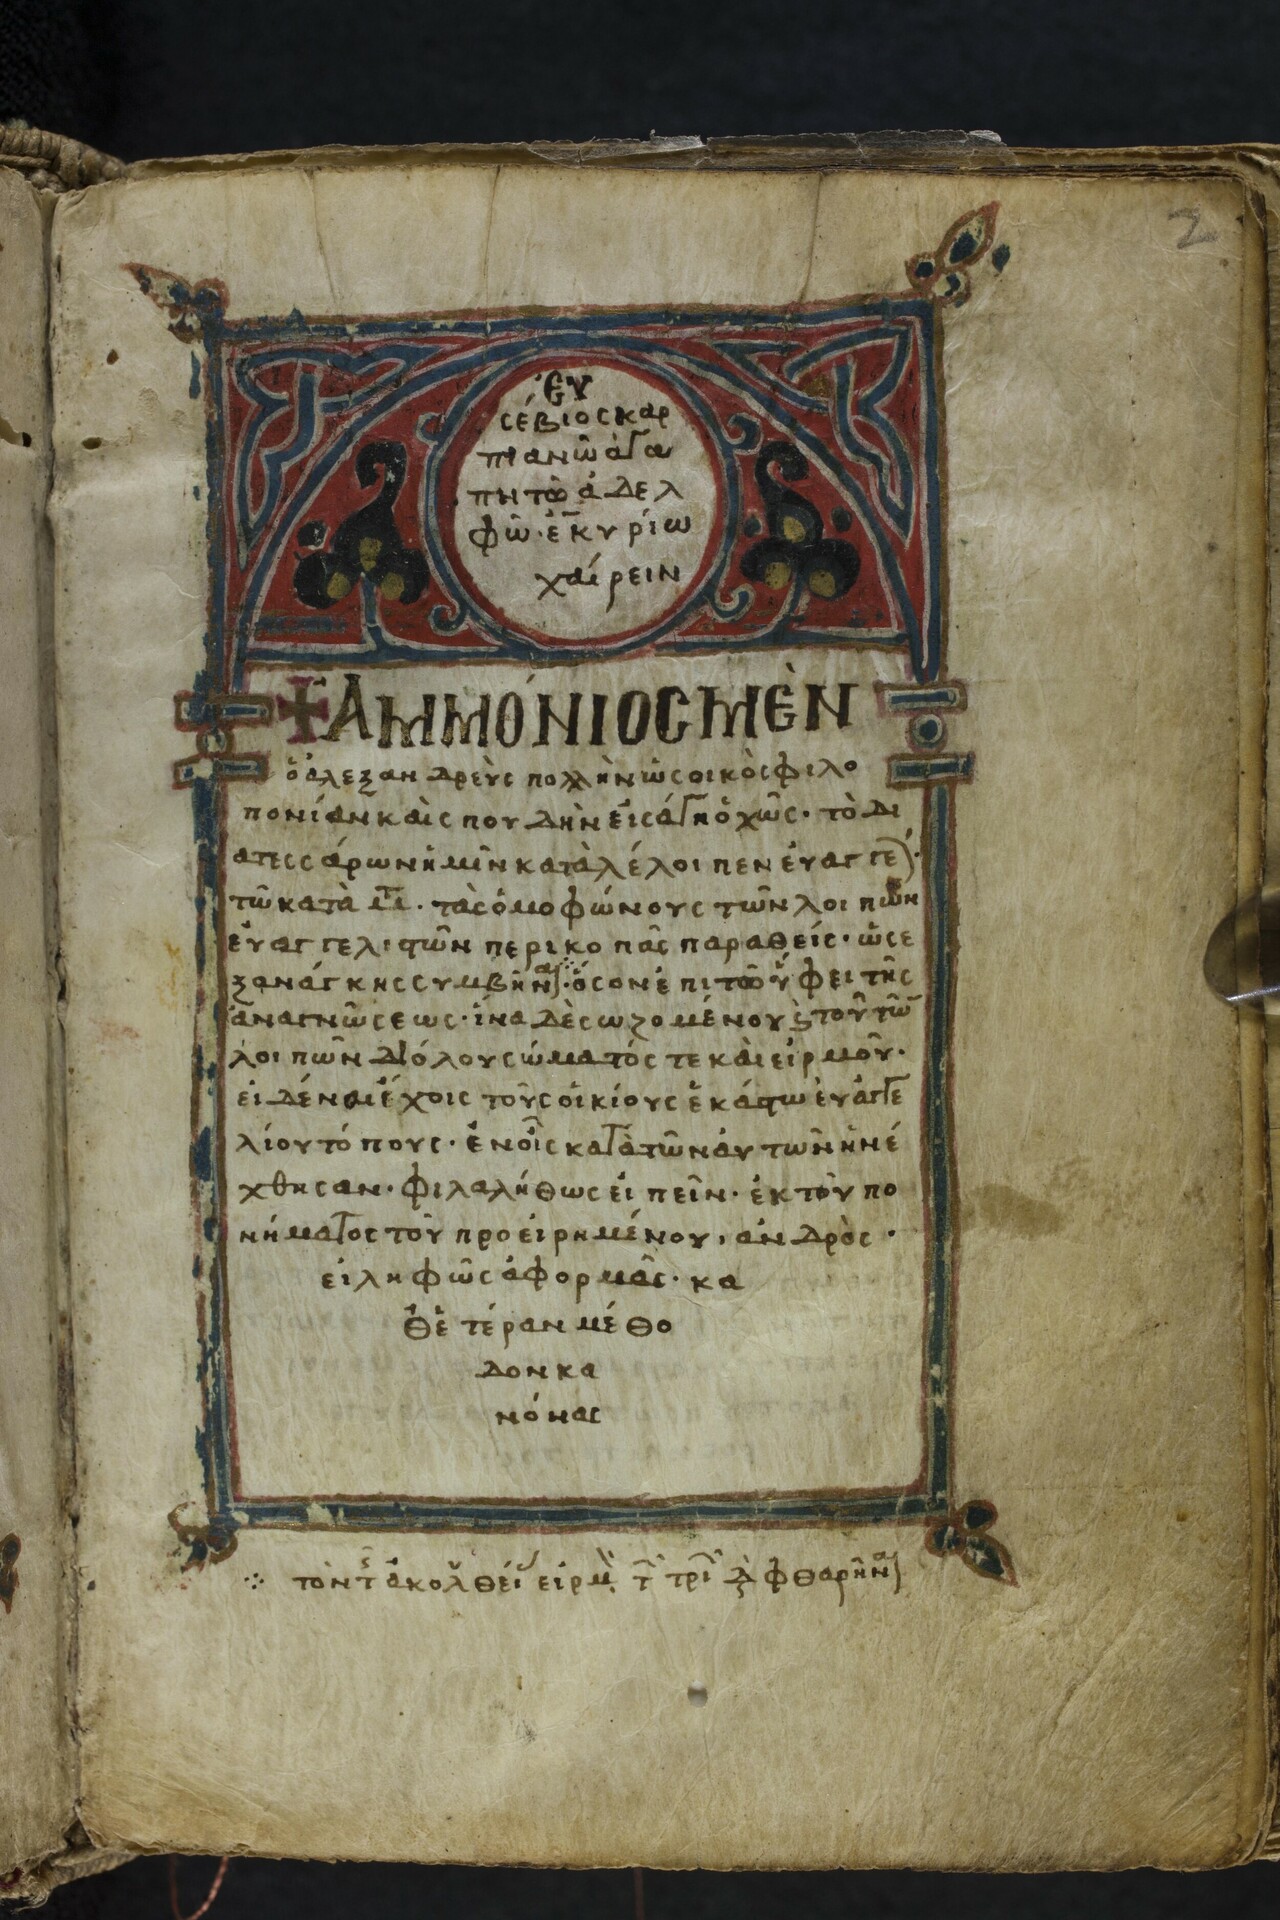 2
ἙΥ
σέβιος καρ
πιανῶ ἀγα
πητῶ ἀδελ
φῶ· ἐν κυρίω
χαίρειν
✝ ἈΜΜΌΝΙΟΣ ΜῈΝ
ὁ ἀλεξανδρεὺς πολλὴν ὡς οικὸς φιλο
πονίαν καὶ σπουδὴν εἰσαγηὀχὼς· τὸ δι
ατεσσάρων ἡμῖν καταλέλοιπεν ἐυαγγε)·
τῶ κατὰ μτ· τὰς ὁμοφώνους τῶν λοιπῶν
ἐυαγγελιστῶν περικοπὰς παραθείς· ὡς ε
ξανάγκης συμβῆναι· ὅσον ἐπι τῶ ὕφει τῆς
ἀναγνώσεως· ἵνα δὲ σωζομένου ϗ τοῦ τῶ
λοιπῶν διόλου σώματός τε καὶ εἱρμοῦ·
ειδέναι ἔχοις τοὺς οἰκίους ἑκάστω ἐυαγγε
λίου τόπους· ἐν οἷς κατὰ τῶν ἀυτῶν ἠνέ
χθησαν· φιλαλήθως εἰπεῖν· ἐκ τοῦ πο
νήματος τοῦ προειρημένου, ἀνδρὸς·
ειληφὼς ἀφορμὰς· κα
θ’ ἑτέραν μέθο
δον κα
νόνας
⁘ τὸν τ ἀκολθεί ειρμ τ τρι δ φθαρῆναι